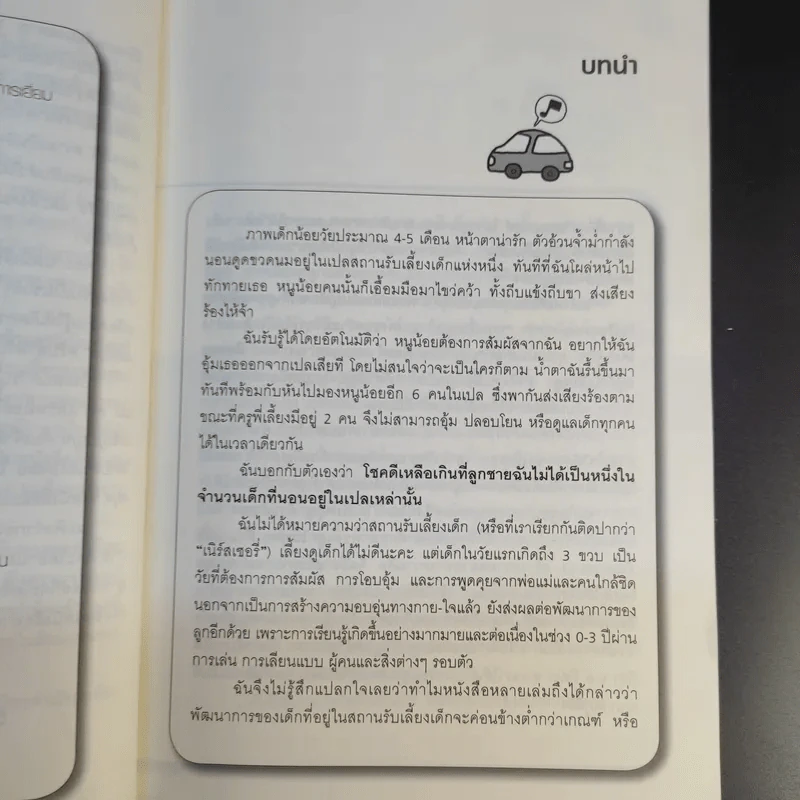 การเยี่ยม
บทนำ
ภาพเด็กน้อยวัยประมาณ 4-5 เดือน หน้าตาน่ารัก ตัวอ้วนจ้ำม่ำกำลัง
นอนดูดขวดนมอยู่ในเปลสถานรับเลี้ยงเด็กแห่งหนึ่ง ทันทีที่ฉันโผล่หน้าไป
ทักทายเธอ หนูน้อยคนนั้นก็เอื้อมมือมาไขว่คว้า ทั้งถีบแข้งถีบขา ส่งเสียง
ร้องไห้จ้า
ฉันรับรู้ได้โดยอัตโนมัติว่า หนูน้อยต้องการสัมผัสจากฉัน อยากให้ฉัน
อุ้มเธอออกจากเปลเสียที โดยไม่สนใจว่าจะเป็นใครก็ตาม น้ำตาฉันรื้นขึ้นมา
ทันทีพร้อมกับหันไปมองหนูน้อยอีก 6 คนในเปล ซึ่งพากันส่งเสียงร้องตาม
ขณะที่ครูพี่เลี้ยงมีอยู่ 2 คน จึงไม่สามารถอุ้ม ปลอบโยน หรือดูแลเด็กทุกคน
ได้ในเวลาเดียวกัน
ฉันบอกกับตัวเองว่า โชคดีเหลือเกินที่ลูกชายฉันไม่ได้เป็นหนึ่งใน
จำนวนเด็กที่นอนอยู่ในเปลเหล่านั้น
ฉันไม่ได้หมายความว่าสถานรับเลี้ยงเด็ก (หรือที่เราเรียกกันติดปากว่า
“เนิร์สเซอรี่”) เลี้ยงดูเด็กได้ไม่ดีนะคะ แต่เด็กในวัยแรกเกิดถึง 3 ขวบ เป็น
วัยที่ต้องการการสัมผัส การโอบอุ้ม และการพูดคุยจากพ่อแม่และคนใกล้ชิด
นอกจากเป็นการสร้างความอบอุ่นทางกาย-ใจแล้ว ยังส่งผลต่อพัฒนาการของ
ลูกอีกด้วย เพราะการเรียนรู้เกิดขึ้นอย่างมากมายและต่อเนื่องในช่วง 0-3 ปีผ่าน
การเล่น การเลียนแบบ ผู้คนและสิ่งต่างๆ รอบตัว
ฉันจึงไม่รู้สึกแปลกใจเลยว่าทำไมหนังสือหลายเล่มถึงได้กล่าวว่า
พัฒนาการของเด็กที่อยู่ในสถานรับเลี้ยงเด็กจะค่อนข้างต่ำกว่าเกณฑ์ หรือ